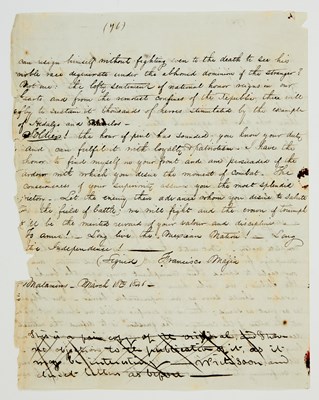 (96)
can resign himself without fighting even to the death to see his
noble race degenerate under the abhored dominion of the stranger?
Not one! The lofty sentiment of national honor reigns in our
hearts and from the remotest confines of the Republic there will
to sustain it thousands of heroes stimulated by the example
of Hidalgo and Morelos.
Soldiers! the hour of peril has sounded: you know your duty
and can fulfil it with loyalty & patriotism. I have the
honor to find myself in your front and am persuaded of the
ardour with which you desire the moment of combat. The
consciousness of your superiority you the most splendid
Let the enemy then advance whom you desire to salute
the field of battle; we will fight and the crown of triumph
will be the merited reward of your valour and discipline
To arms! Long live the Mexican Nation! Long
its Independence
(Signed) Francisco Mejia
Matamoros March 18th 1846
This is a copy of the original, and I have
no objection to the publication of it, as it
may be interesting
direct letters as before